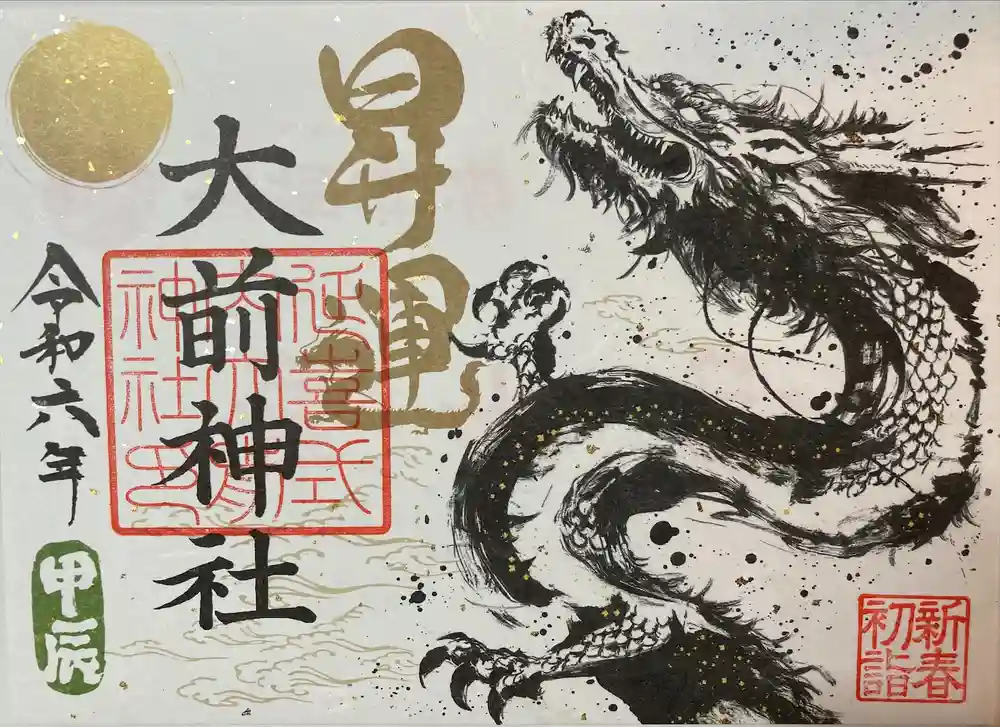 昇運
大前神社
延喜式
大前神社印
令和六年
甲辰
新春
初詣